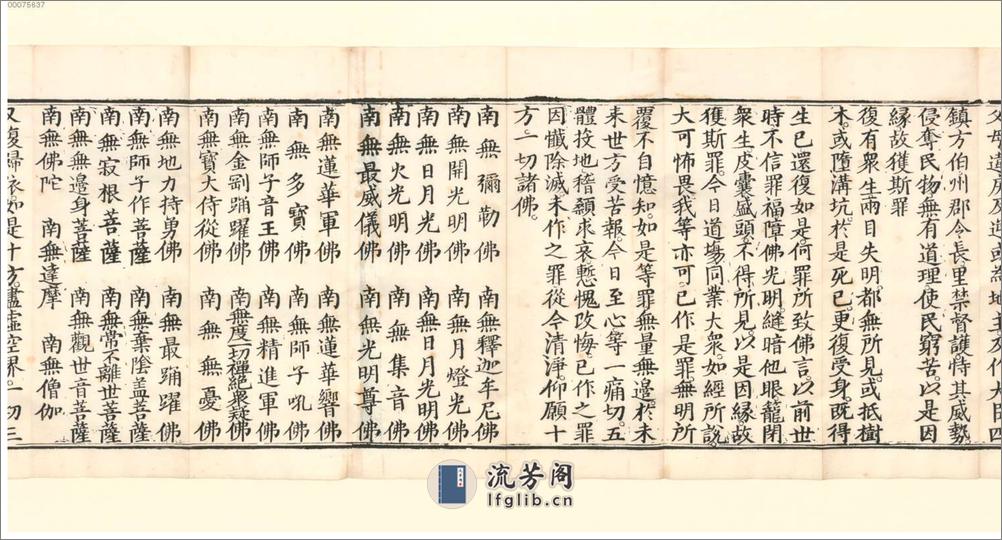 00075637
鎮方伯州郡令長里禁督護恃其威勢
侵奪民物無有道理使民窮苦以是因
緣故獲斯罪
復有衆生兩目失明都無所見或抵樹
木或墮溝坑於是死已更復受身既得
生已還復如是何罪所致佛言以前世
時不信罪福障佛光明縫暗他眼籠閉
衆生皮囊盛頭不得所見以是因緣故
獲斯罪今日道場同業大衆如經所說
大可怖畏我等亦可已作是罪無明所
覆不自憶知如是等罪無量無邊於未
来世方受苦報今日至心等一痛切五
體投地稽顙求哀慙愧改悔已作之罪
因懺除滅未作之罪從今清淨仰願十
方一切諸佛
南無彌勒佛 南無釋迦牟尼佛
南無開光明佛 南無月燈光佛
南無日月光佛 南無日月光明佛
南無火光明佛 南無集音佛
南無最威儀佛 南無光明尊佛
南無蓮華軍佛 南無蓮華響佛
南無多寶佛 南無師子吼佛
南無師子音王佛 南無精進軍佛
南無金剛踊躍佛 南無度一切禪絕衆疑佛
南無寶大侍從佛 南無無憂佛
南無地力持勇佛 南無最踊躍佛
南無師子作菩薩 南無棄陰盖菩薩
南無寂根菩薩 南無常不離世菩薩
南無無邊身菩薩 南無觀世音菩薩
南無佛陀 南無達摩 南無僧伽
又復歸依如是十方盡虛空界一切三
流芳阁
lfglib.cn